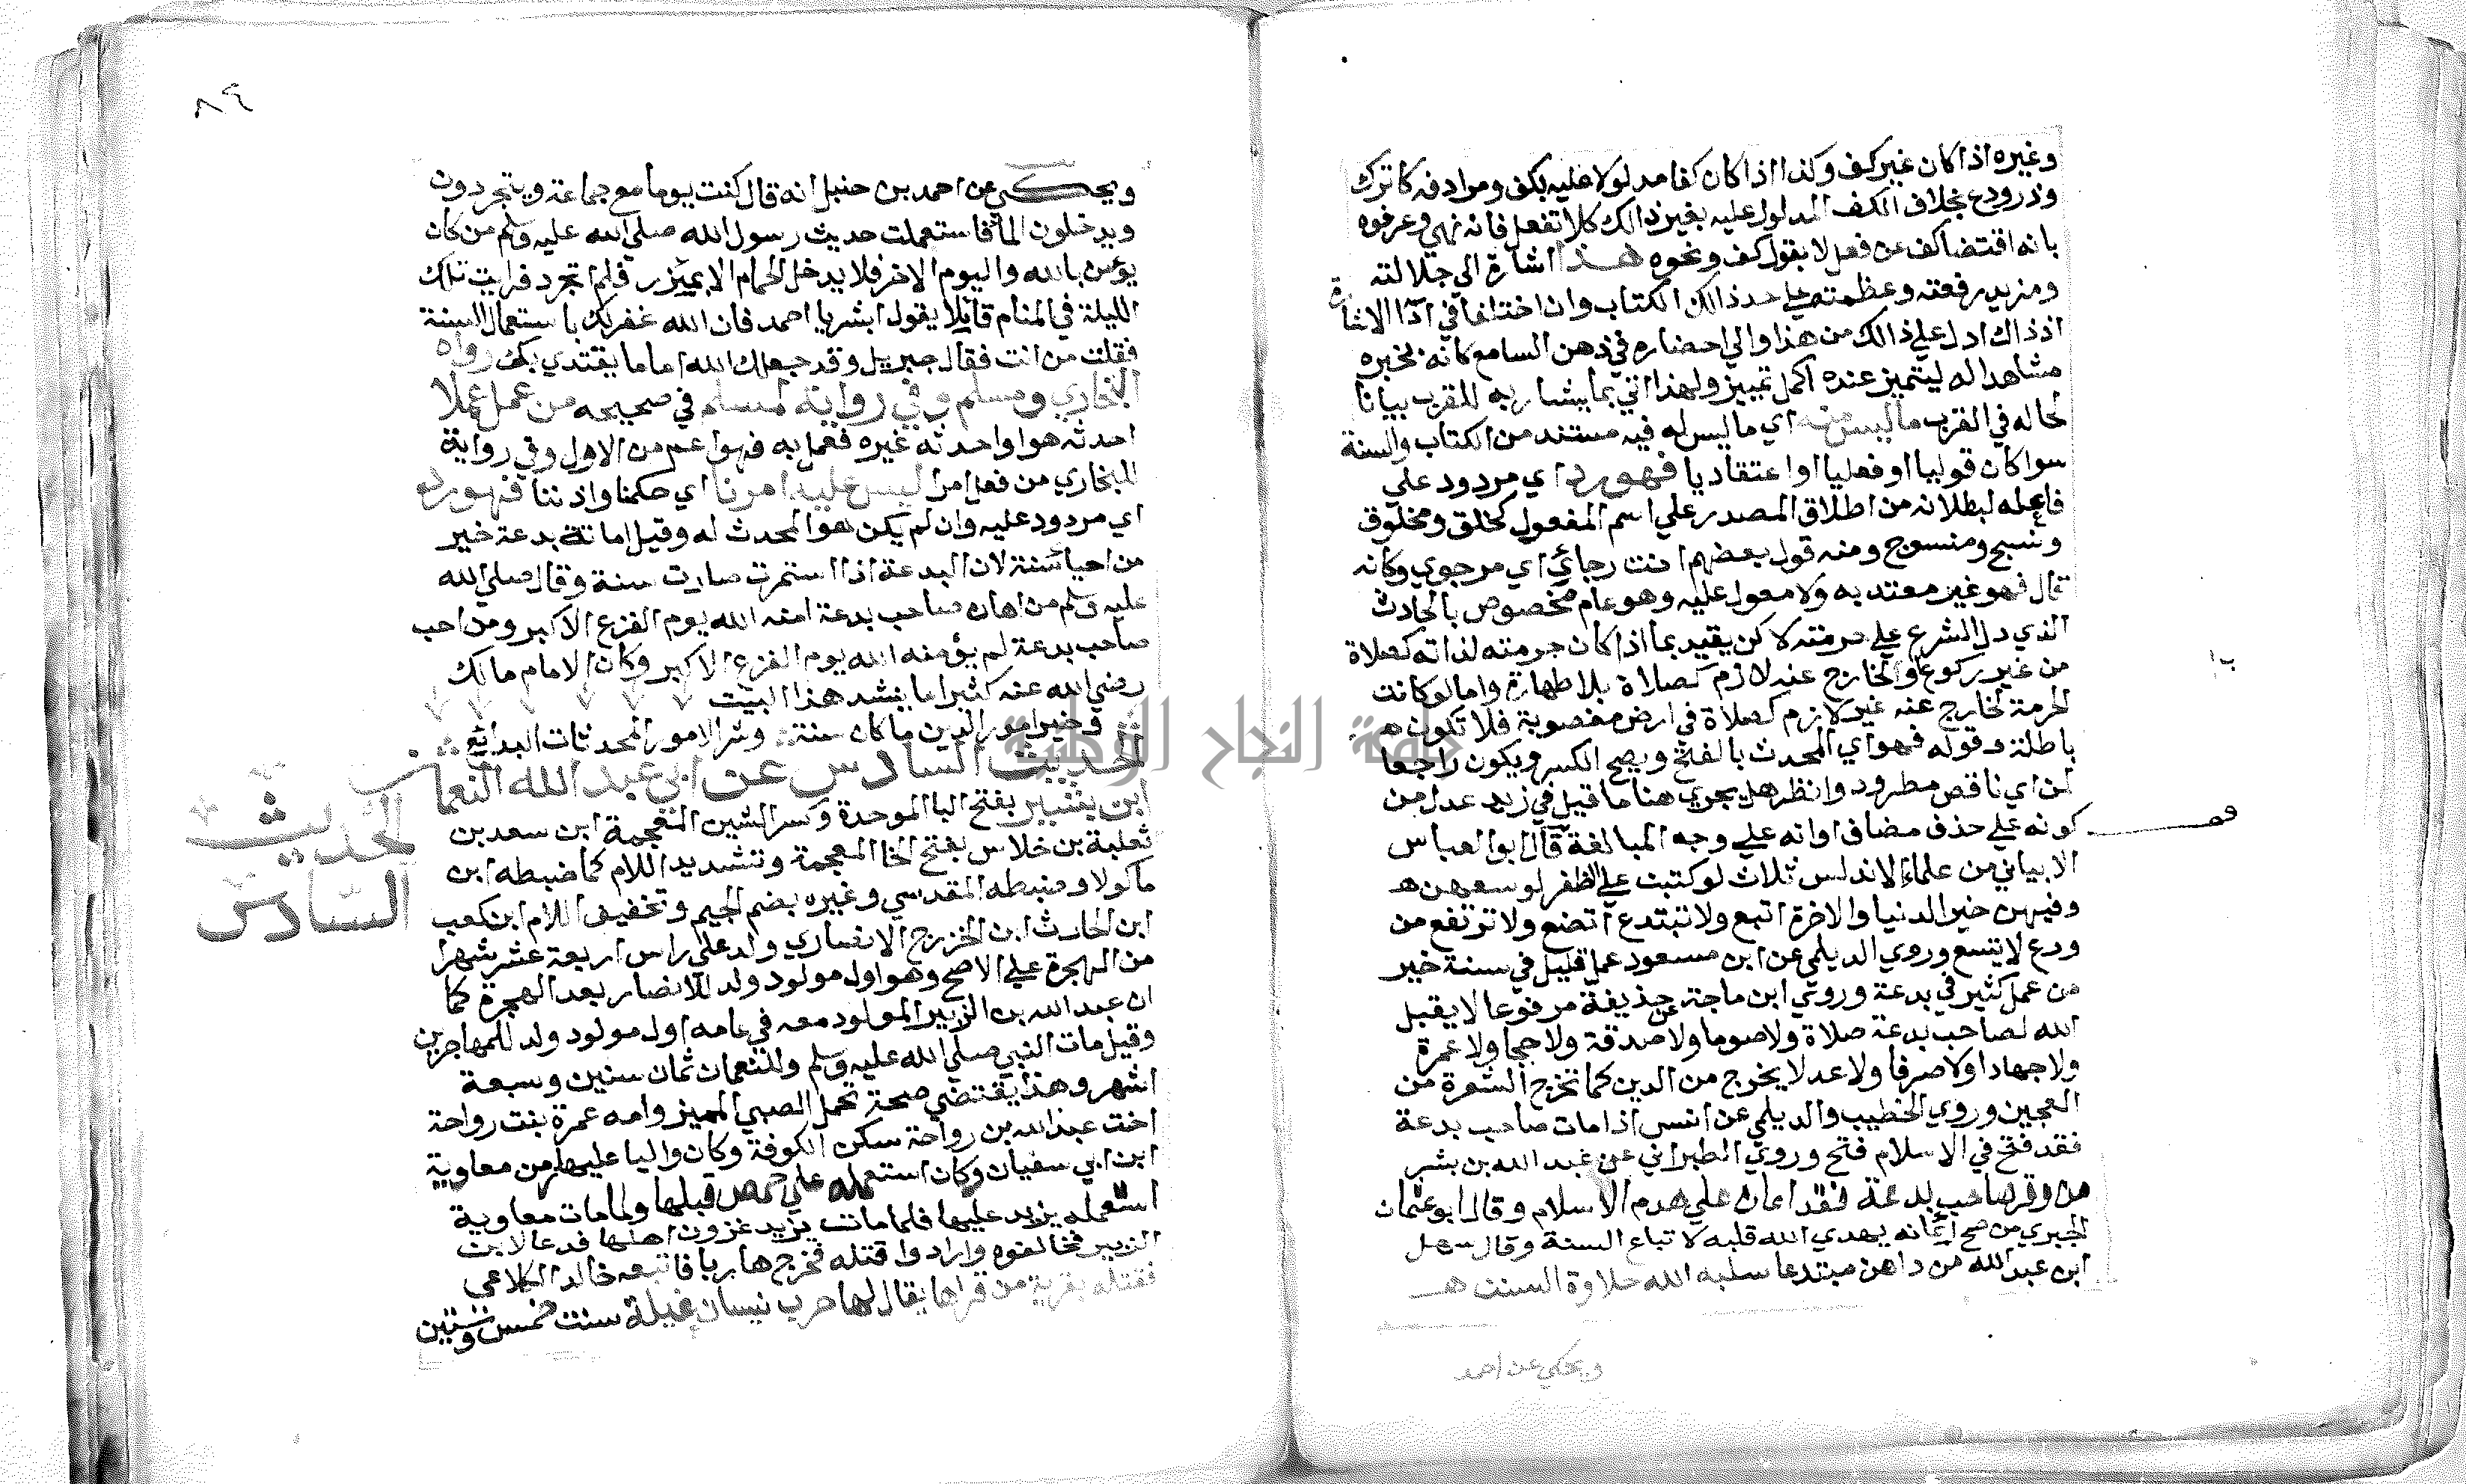 وغيره اذا كان غير كف وكذا اذا كان كفا مدلولا عليه بكف ومرادفه كاترك
وذر ودع بخلاف الكف المدلول عليه بغير ذالك كلا تفعل فانه نهي وعرفوه
بانه اقتضا كف عن فعل لا بقول كف ونحوه هذا اشارة الي جلالته
ومزيد رفعته وعظمته علي حد ذالك الكتاب وان اختلفا في اداا الاشارة
اذ ذاك ادل علي ذالك من هذا والي احضاره في ذهن السامع كانه يخبره
مشاهدا له ليتميز عنده اكمل تمييز ولهذا اتي بما يشار به للقرب بيانا
لحاله في القرب ما ليس منه اي ما ليس له فيه مستند من الكتاب والسنة
سوا كان قوليا او فعليا او اعتقاديا فهو رد اي مردود علي
فاعله لبطلانه من اطلاق المصدر علي اسم المفعول كخلق ومخلوق
ونسج ومنسوج ومنه قول بعضهم انت رجائي اي مرجوي وكانه
قال فهو غير معتد به ولا معول عليه وهو عام مخصوص بالحادث
الذي دل الشرع علي حرمته لاكن يقيد بما اذا كان حرمته لذاته كصلاة
من غير ركوع او لخارج عنه لازم كصلاة بلا طهارة واما لو كانت
الحرمة لخارج عنه غير لازم كصلاة في ارض مغصوبة فلا تكون هـ
باطلة وقوله فهو اي المحدث بالفتح ويصح الكسر ويكون راجعا
لمن اي ناقص مطرود وانظر هل يجري هنا ما قيل في زيد عدل من
كونه علي حذف مضاف او انه علي وجه المبالغة قال ابو العباس
الابياني من علماء الاندلس ثلاث لو كتبت علي الظفر لوسعهن هـ
وفيهن خير الدنيا والاخرة اتبع ولا تبتدع اتضع ولا ترتفع من
ورع لا يتسع وروي الديلمي عن ابن مسعود عمل قليل في سنة خير
من عمل كثير في بدعة وروي ابن ماجة عن حذيفة مرفوعا لا يقبل
الله لصاحب بدعة صلاة ولا صوما ولا صدقة ولا حجا ولا عمرة
ولا جهادا ولا صرفا ولا عدلا يخرج من الدين كما تخرج الشعرة من
العجين وروي الخطيب والديلمي عن انس اذا مات صاحب بدعة
فقد فتح في الاسلام فتح وروي الطبراني عن عبد الله بن بشر
من وقر صاحب بدعة فقد اعان علي هدم الاسلام وقال ابو عثمان
الجبري من صح ايمانه يهدي الله قلبه لاتباع السنة وقال سهل
ابن عبد الله من داهن مبتدعا سلبه الله حلاوة السنن هـ
ويحكي عن احمد
٨٤
ويحكي عن احمد بن حنبل انه قال كنت يوما مع جماعة ويتجردون
ويدخلون الما فاستعملت حديث رسول الله صلي الله عليه وسلم من كان
يؤمن بالله واليوم الاخر فلا يدخل الحمام الا بميزر فلم اتجرد فرايت تلك
الليلة في المنام قايلا يقول ابشر يا احمد فان الله غفر لك باستعمال السنة
فقلت من انت فقال جبريل وقد جعلك الله اماما يقتدي بك رواه
البخاري ومسلم وفي رواية لمسلم في صحيحه من عمل عملا
احدثه هو او احدثه غيره فعمل به فهو اعم من الاول وفي رواية
للبخاري من فعل امرا ليس عليه امرنا اي حكمنا واذننا فهو رد
اي مردود عليه وان لم يكن هو المحدث له وقيل اماتة بدعة خير
من احيا سنة لان البدعة اذا استمرت صارت سنة وقال صلي الله
عليه وسلم من اهان صاحب بدعة امنه الله يوم الفزع الاكبر ومن احب
صاحب بدعة لم يؤمنه الله يوم الفزع الاكبر وكان الامام مالك
رضي الله عنه كثيرا ما ينشد هذا البيت
وخير امور الدين ما كان سنة وشر الامور المحدثات البدائع
الحديث السادس عن ابي عبد الله النعمان
الحديث
السادس
ابن بشير بفتح البا الموحدة وكسر الشين المعجمة ابن سعد بن
ثعلبة بن خلاس بفتح الخا المعجمة وتشديد اللام كما ضبطه ابن
ماكولا وضبطه المقدسي وغيره بضم الجيم وتخفيف اللام ابن كعب
ابن الحارث ابن الخزرج الانصاري ولد علي راس اربعة عشر شهرا
من الهجرة علي الاصح وهو اول مولود ولد للانصار بعد الهجرة كما
ان عبد الله بن الزبير المولود معه في عامه اول مولود ولد للمهاجرين
وقيل مات النبي صلي الله عليه وسلم والنعمان ثمان سنين وسبعة
اشهر وهذا يقتضي صحة تحمل الصبي المميز وامه عمرة بنت رواحة
اخت عبد الله بن رواحة سكن الكوفة وكان واليا عليها من معاوية
ابن ابي سفيان وكان استعمله علي حمص قبلها ولما مات معاوية
استعمله يزيد عليها فلما مات يزيد اهلها فدعا لابن
الزبير فخالفوه وارادوا قتله فخرج هاربا فاتبعه خالد الكلاعي
فقتله بقرية من قراها يقال لها حرب نيسان غيلة سنت خمس وستين